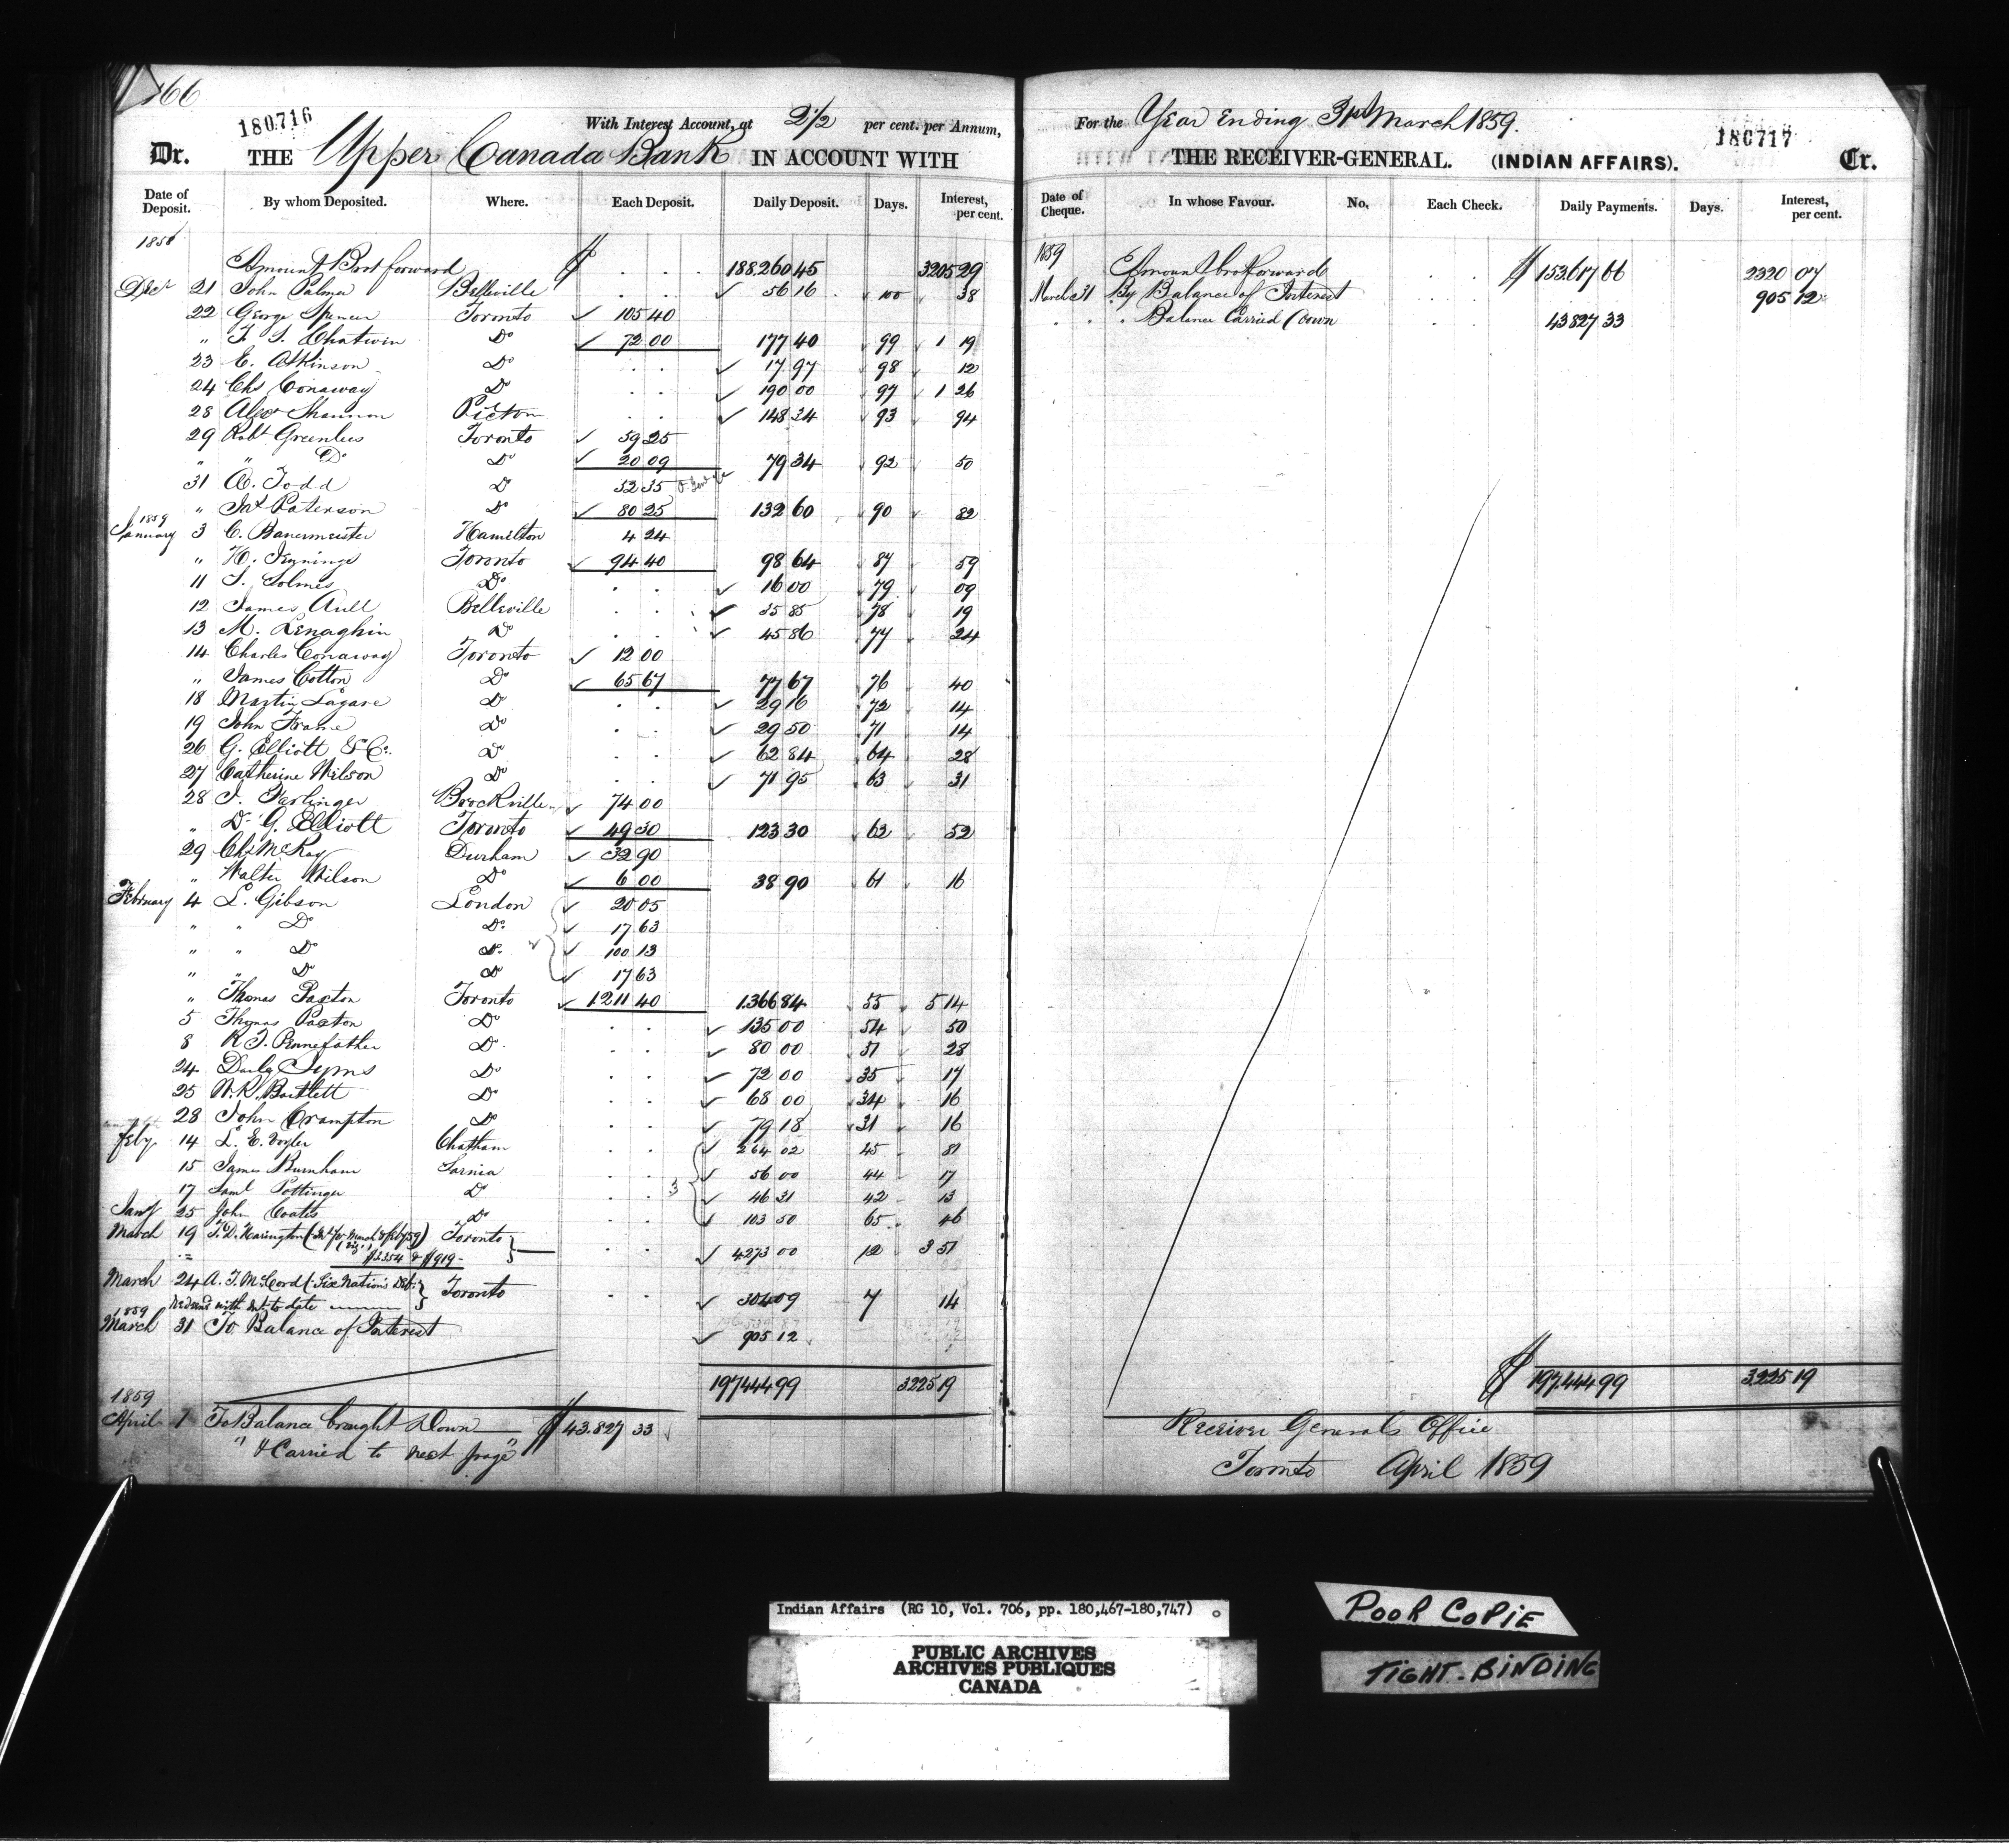 166
180716
With Interest Account, at 2 1/2 per cent. per Annum,
Dr. THE Upper Canada Bank IN ACCOUNT WITH
Date of Deposit. By whom Deposited. Where. Each Deposit. Daily Deposit. Days. Interest, per cent.
1858
Amount Brot forward $ 188.260 45 3205 29
Decr 21 John Palmer Belleville 56 16 100 38
22 George Spencer Toronto 105 40
" T. S. Chatwin Do 72 00 177 40 99 1 19
23 E. Atkinson Do 17 97 98 12
24 Chs Conaway Do 190 00 97 1 26
28 Alexr Shannon Picton 148 34 93 94
29 Robt Greenlees Toronto 59 25
" " Do Do 20 09 79 34 92 50
31 A. Todd Do 52 35
" Jas Paterson Do 80 25 132 60 90 82
1859
January 3 C. Banermeister Hamilton 4 24
" H. Jennings Toronto 94 40 98 64 87 59
11 S. Solmes Do 16 00 79 09
12 James Aull Belleville 35 85 78 19
13 M. Lenaghin Do 45 86 77 24
14 Charles Conaway Toronto 12 00
" James Cotton Do 65 67 77 67 76 40
18 Martin Lagare Do 29 16 72 14
19 John Frame Do 29 50 71 14
26 G. Elliott & Co. Do 62 84 64 28
27 Catherine Wilson Do 71 95 63 31
28 I. Farlinger Brockville 74 00
" Dr G. Elliott Toronto 49 30 123 30 62 52
29 Chs McKay Durham 32 90
" Walter Wilson Do 6 00 38 90 61 16
February 4 L. Gibson London 20 05
" " Do Do 17 63
" " Do Do 100 13
" " Do Do 17 63
" Thomas Paxton Toronto 1211 40 1366 84 55 5 14
5 Thomas Paxton Do 135 00 54 50
8 R. T. Pennefather Do 80 00 51 28
24 Symes Do 72 00 35 17
25 W. R. Bartlett Do 68 00 34 16
28 John Crampton Do 79 18 31 16
Feby. 14 L. E. Vogler Chatham 264 02 45 81
15 James Burnham Sarnia 56 00 44 17
17 Saml Pottinger Do 3 46 31 42 13
Jany 25 John Coates Do 103 50 65 46
March 19 T. D. Harington (Int for March & Feby 59) Toronto
(viz) $3354 & $919 - 4273 00 12 3 51
March 24 A. T. McCord (Six Nations Deb: Toronto
Redeemd with Int. to date 304 09 7 14
1859
March 31 To Balance of Interest 905 12
197444 99 3225 19
1859
April 1 To Balance brought Down $ 43.827 33
" & Carried to next page "
For the Year Ending 31st March 1859.
180717
THE RECEIVER-GENERAL. (INDIAN AFFAIRS). Cr.
Date of Cheque. In whose Favour. No. Each Check. Daily Payments. Days. Interest, per cent.
1859
Amount brot forward $ 153.617 66 2320 07
March 31 By Balance of Interest 905 12
" Balance Carried Down 43827 33
$ 197.444 99 3225 19
Receiver Generals Office
Toronto April 1859
Indian Affairs (RG 10, Vol. 706, pp. 180,467-180,747)
PUBLIC ARCHIVES
ARCHIVES PUBLIQUES
CANADA
POOR COPIE
TIGHT-BINDING